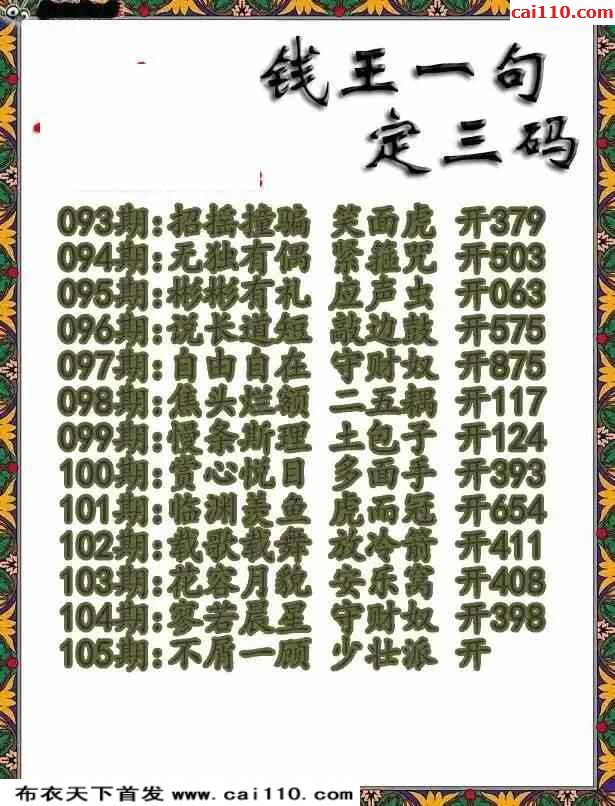 cai110.com
钱王一句
定三码
093期:招摇撞骗 笑面虎 开379
094期:无独有偶 紧箍咒 开503
095期:彬彬有礼 应声虫 开063
096期:说长道短 敲边鼓 开575
097期:自由自在 守财奴 开875
098期:焦头烂额 二五耦 开117
099期:慢条斯理 土包子 开124
100期:赏心悦目 多面手 开393
101期:临渊羡鱼 虎而冠 开654
102期:载歌载舞 放冷箭 开411
103期:花容月貌 安乐窝 开408
104期:寥若晨星 守财奴 开398
105期:不屑一顾 少壮派 开
布衣天下首发 www.cai110.com